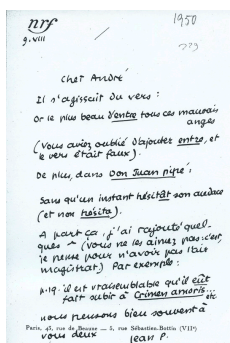 nrf
1950
9.VIII
Cher André
Il s'agissait du vers :
Or le plus beau d'entre tous ces mauvais
anges
(Vous aviez oublié d'ajouter entre, et
le vers était faux).
De plus, dans Don Juan pipé,
Sans qu'un instant hésitât son audace
(et non hésita).
A part ça, j'ai rajouté quel-
ques (vous ne les aimez pas : c'est,
je pense pour n'avoir pas l'air
magistrat.) Par exemple :
p.19. il est vraisemblable qu'il eût
fait subir à Crimen amoris...
etc
nous pensons bien souvent à
vous deux
Jean P.
Paris, 43, rue de Beaune — 5, rue Sébastien-Bottin (VIIe)